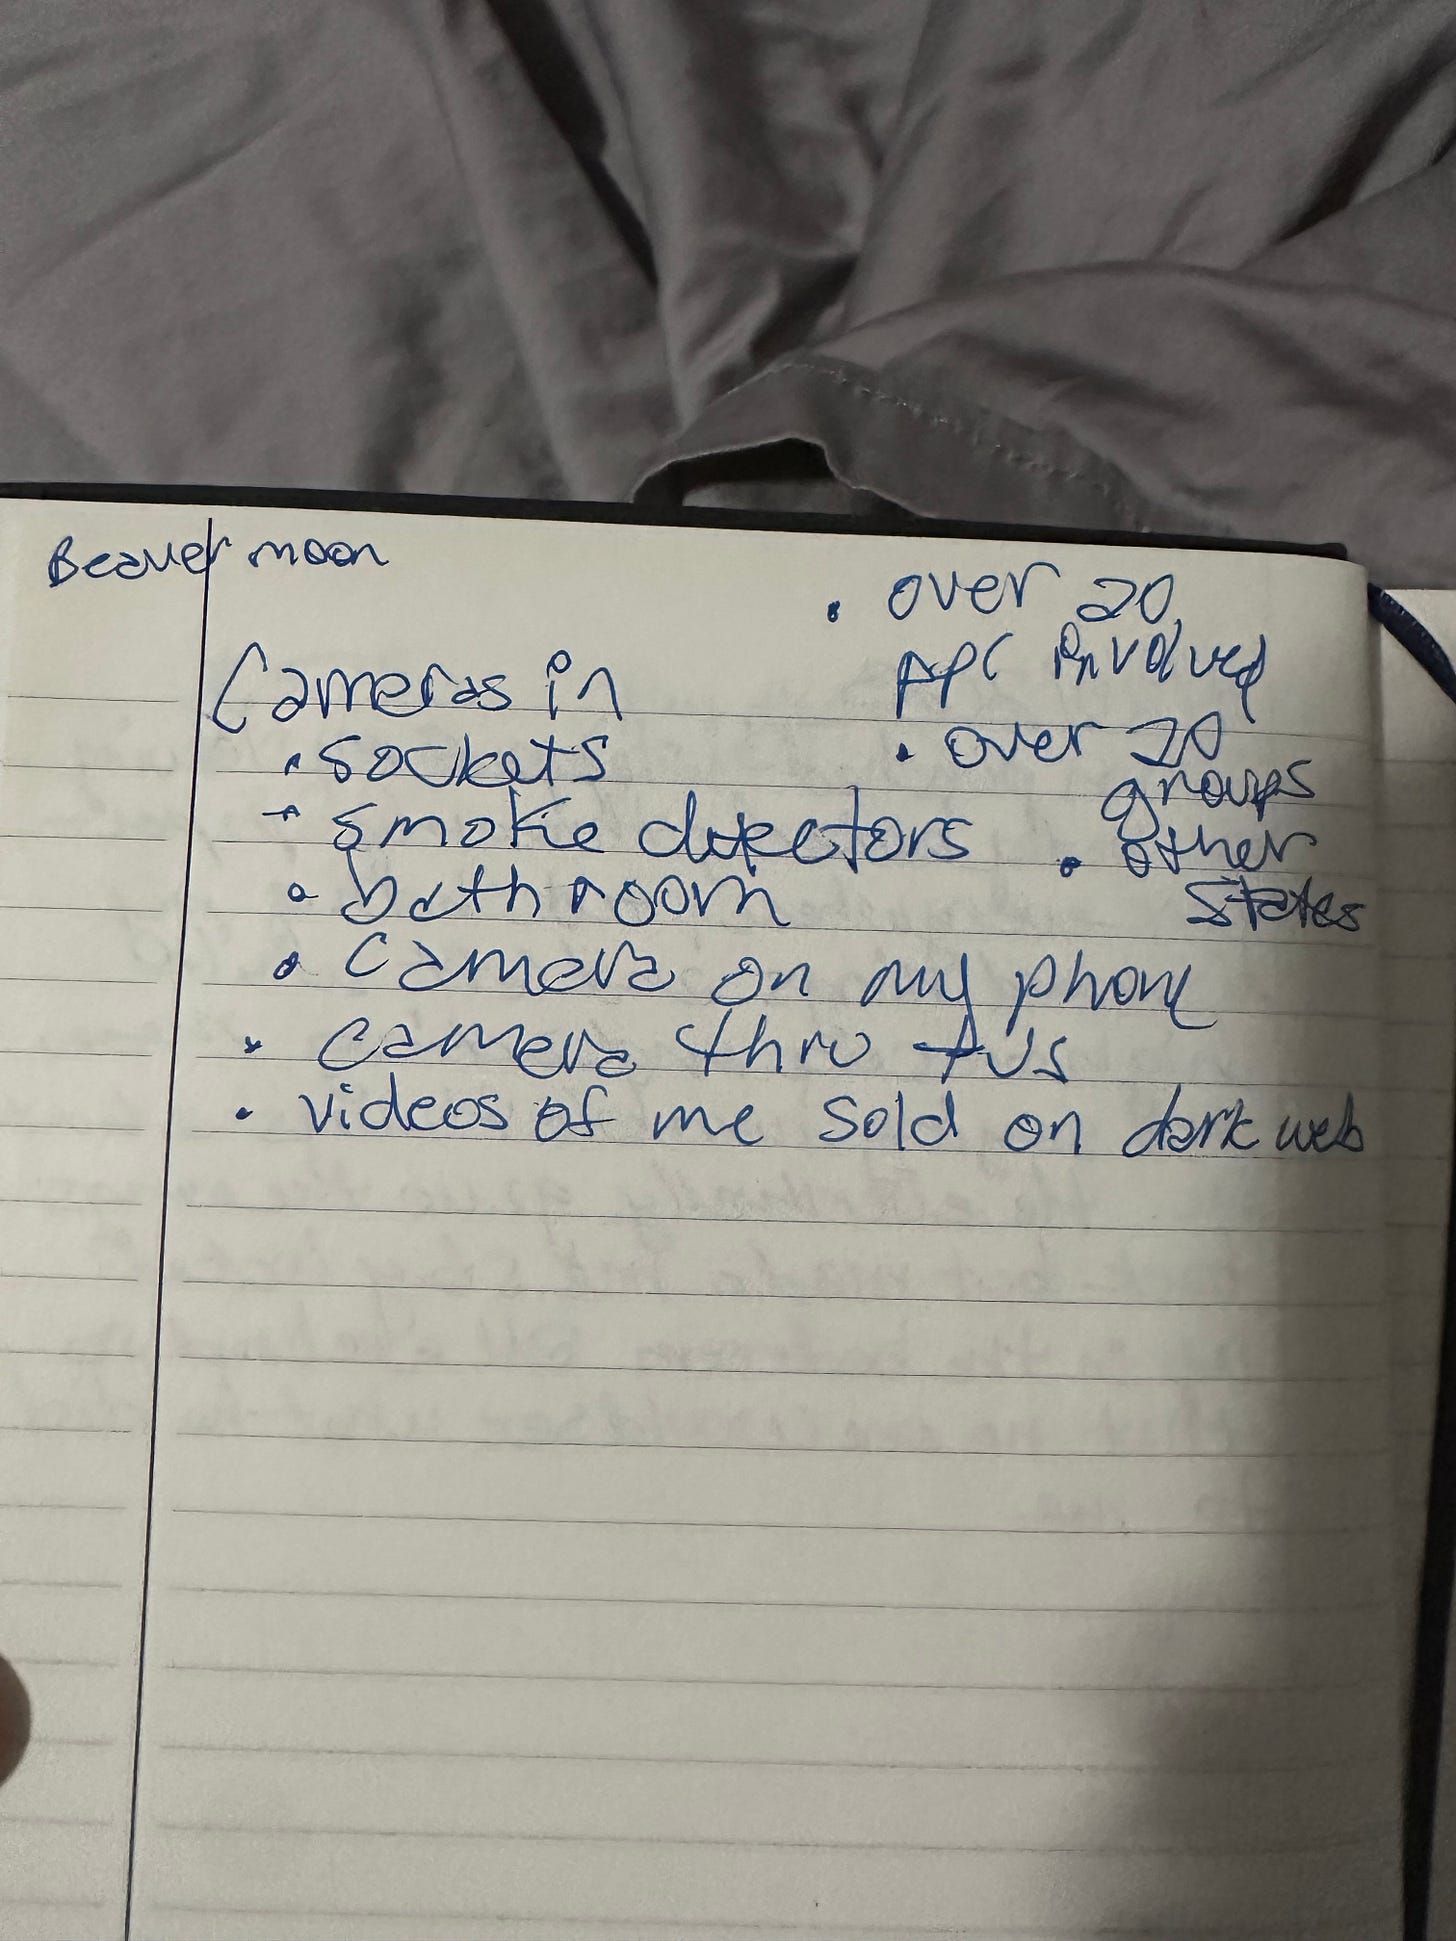 Beaver moon
Cameras in
• sockets
• smoke detectors
• bathroom
• camera on my phone
• camera thro tvs
• videos of me sold on dark web
• over 20
ppl involved
• over 20
groups
• other
states